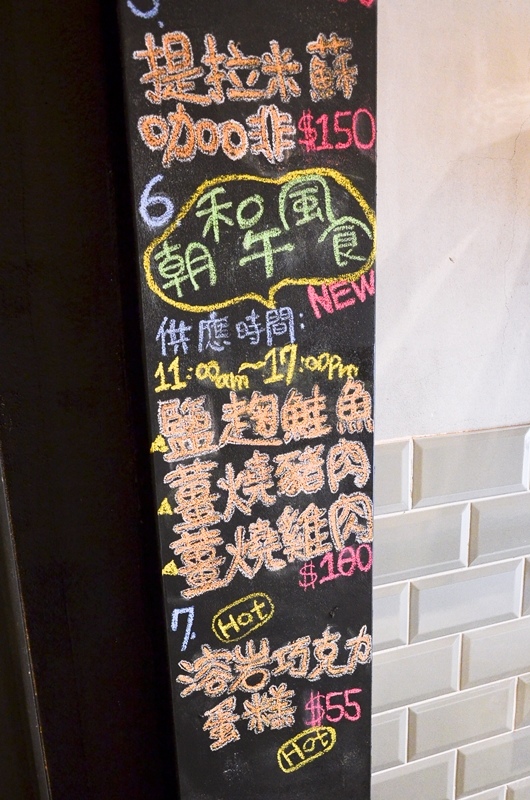 5.
提拉米蘇
咖啡 $150
6
和風
朝午食
NEW
供應時間:
11:00am~17:00pm
鹽麴鮭魚
薑燒豬肉
薑燒雞肉
$180
7.
Hot
溶岩巧克力
蛋糕 $55
Hot